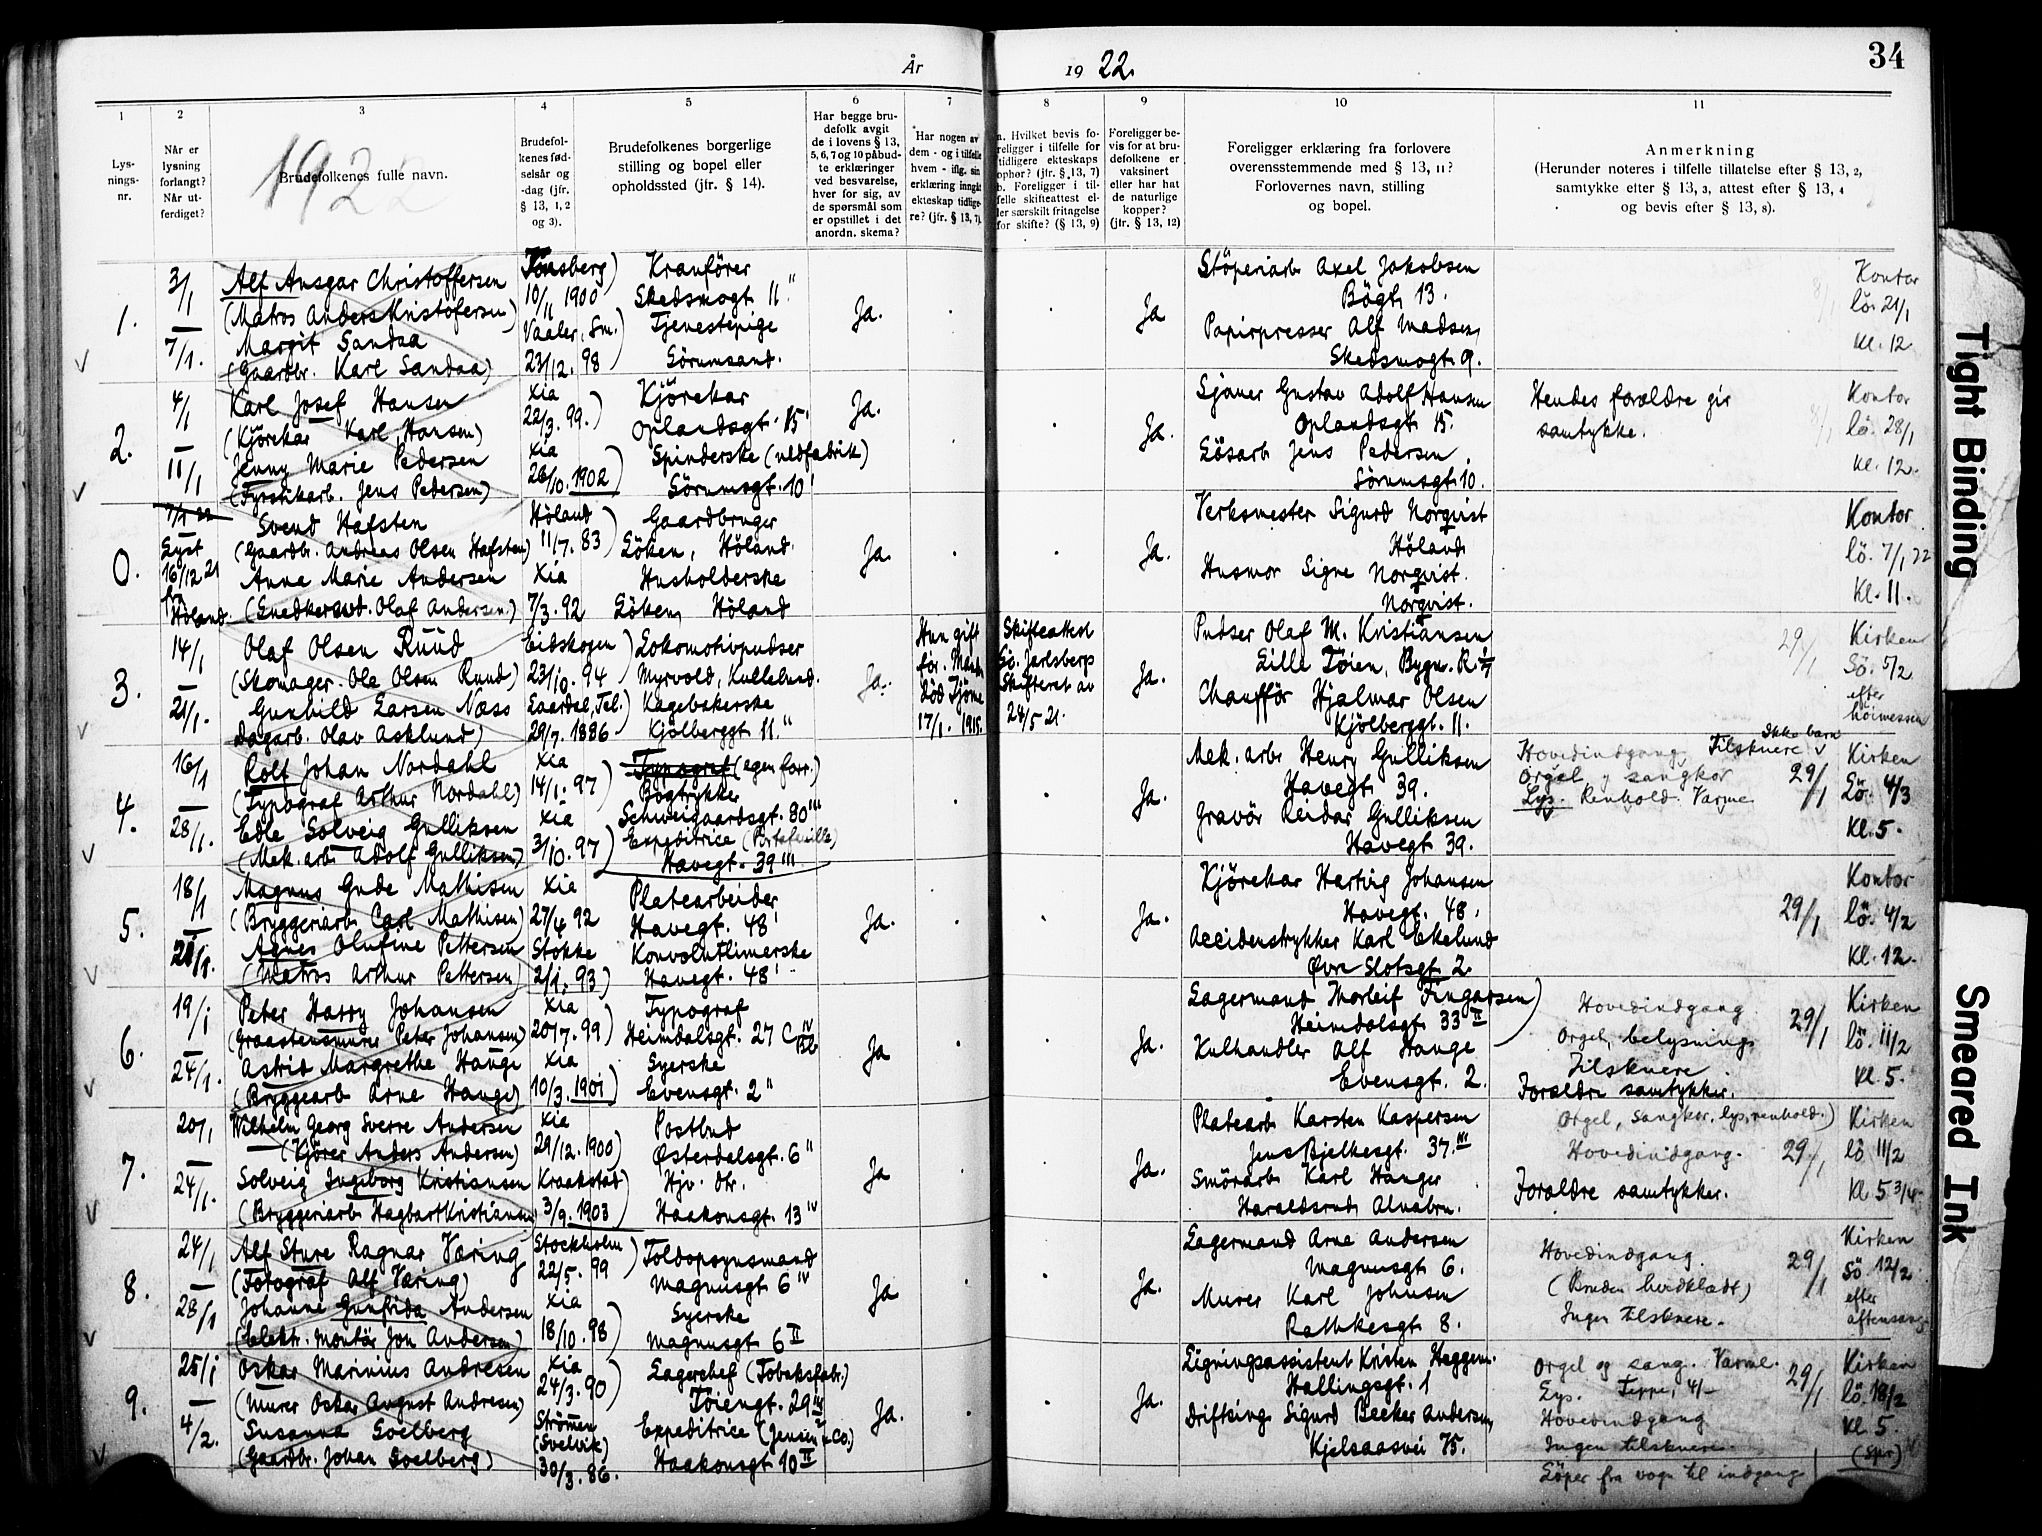 År 1922.
34
1
2
3
4
5
6
7
8
9
10
11
Lys-
nings-
nr.
Når er
lysning
forlangt?
Når ut-
ferdiget?
Brudefolkenes fulle navn.
1922
Brudefol-
kenes fød-
selsår og
-dag (jfr.
§ 13, 1, 2
og 3).
Brudefolkenes borgerlige
stilling og bopel eller
opholdssted (jfr. § 14).
Har begge bru-
defolk avgit
de i lovens § 13,
5, 6, 7 og 10 påbud-
te erklæringer
ved besvarelse,
hver for sig, av
de spørsmål som
er opstillet i det
anordn. skema?
Har nogen av
dem - og i tilfelle
hvem - iflg. sin
erklæring inngått
ekteskap tidlige-
re? (jfr. § 13, 7).
a. Hvilket bevis fo-
religger i tilfelle for
tidligere ekteskaps
ophør? (jfr. § 13, 7)
b. Foreligger i til-
felle skifteattest el-
ler særskilt fritagelse
for skifte? (§ 13, 9)
Foreligger be-
vis for at bru-
defolkene er
vaksinert
eller har hat
de naturlige
kopper?
(jfr. § 13, 12)
Foreligger erklæring fra forlovere
overensstemmende med § 13, 11?
Forlovernes navn, stilling
og bopel.
Anmerkning
(Herunder noteres i tilfelle tillatelse efter § 13, 2,
samtykke efter § 13, 3, attest efter § 13, 4
og bevis efter § 13, 8).
1.
3/1
7/1.
Alf Ansgar Christoffersen
(Matros Anders Kristofersen)
Margit Sandaa
(Gaardbr. Karl Sandaa)
Tønsberg)
10/11 1900
Vaaler, Sm.)
23/12. 98
Kranfører
Skedsmogt 11."
Tjenestepige
Sörumsand.
Ja.
Ja
Stöperiarb Axel Jakobsen
Bögt 13.
Papirpresser Alf Madsen,
Skedsmogt. 9.
8/1
Kontor
lö. 21/1
Kl. 12
2.
4/1
11/1
Karl Josef Hansen
(Kjörekar Karl Hansen)
Jenny Marie Pedersen
(Fyrstikarb. Jens Pedersen)
Xia
22/3. 99.)
Xia
26/10. 1902)
Kjörekar
Oplandsgt. 15'
Spinderske (uldfabrik)
Sörumsgt. 10'
Ja.
Ja.
Sjauer Gustav Adolf Hansen
Oplandsgt 15.
Lösarb Jens Pedersen,
Sörumsgt. 10.
Hendes forældre gir
samtykke.
8/1
Kontor
lö. 28/1
Kl. 12.
0.
7/1 22
Lyst
16/12 21
fra
Höland.
Svend Hafsten
(Gaardbr. Andreas Olsen Hafsten)
Anna Marie Andersen
(Snedkersvd. Olaf Andersen.)
Höland
11/7. 83)
Xia
7/3. 92
Gaardbruger
Löken, Höland.
Husholderske
Löken, Höland
Ja.
Ja.
Verksmester Sigurd Norqvist
Höland
Husmor Signe Norqvist.
Norqvist.
Kontor
lö. 7/1 22
Kl. 11.
3.
14/1
21/1.
Olaf Olsen Ruud
(Skomager. Ole Olsen Ruud)
Gunhild Larsen Næss
Dagarb. Olav Asklund)
Eidskogen)
23/10. 94
Laardal, Tel.)
29/7. 1886
Lokomotivpudser
Myrvold, Kullebund.
Kagebakerske
Kjölberggt 11."
Ja.
Hun gift
før. Mand
död Tjöme
17/1. 1915.
Skifteattest
Sö. Jarlsberg
Skifteret av
24/5 21.
Ja.
Pudser Olaf M. Kristiansen
Lille Töien, Bygn. R
Chaufför Hjalmar Olsen
Kjölberggt. 11.
29/1
Kirken
Sö. 5/2
efter
höimessen
4.
16/1
28/1.
Rolf Johan Nordahl
(Typograf Arthur Nordahl)
Edle Solveig Gulliksen
(Mek. arb Adolf Gulliksen)
Xia
14/1. 97)
Xia
3/10. 97)
Typograf (egen forr.)
Bogtrykker
Schweigaardsgt. 80'''
Expeditrice (Portefeuille)
Havegt. 39'''
Ja.
Mek. arb. Henry Gulliksen
Havegt 39.
Gravör Reidar Gulliksen
Havegt 39.
Ikke barn
Hovedindgang, Tilskuere
Orgel, sangkor
Lys. Renhold. Varme
29/1
Kirken
Lö. 4/3
Kl. 5.
5.
18/1
28/1.
Magnus Gude Mathisen
(Bryggeriarb Carl Mathisen)
Agnes Olufine Pettersen
(Matros Arthur Pettersen)
Xia
27/4 92
Stokke
2/1. 93)
Platearbeider
Havegt. 48'
Konvoluttlimerske
Havegt. 48'
Ja.
Ja.
Kjörekar Hartvig Johansen
Havegt. 48.
Accidenstrykker Karl Ekelund
Øvre Slotsgt. 2.
29/1
Kontor
lö. 4/2
Kl. 12.
6.
19/1
24/1.
Peter Harry Johansen
(Graastensmurer Peter Johansen)
Astrid Margrethe Hauge
(Bryggearb Arne Hauge)
Xia
20/7. 99)
Xia
10/3. 1901)
Typograf
Heimdalsgt. 27 C
Syerske
Evensgt. 2"
Ja
Ja.
Lagermand Thorleif Fingarsen)
Heimdalsgt. 33 II
Kulhandler Alf Hauge
Evensgt. 2.
Hovedindgang
Orgel, belysning,
Tilskuere.
Forældre samtykker.
29/1
Kirken
lö. 11/2
Kl. 5.
7.
20/1
24/1.
Wilhelm Georg Sverre Andersen
(Kjörer Anders Andersen)
Solveig Ingeborg Kristiansen
(Bryggeriarb Hagbart Kristiansen)
Xia
29/12. 1900)
Kraakstad
3/9. 1903
Postbud
Østerdalsgt. 6"
Hjv. dtr.
Haakonsgt. 13 IV
Ja
Ja.
Platearb Karsten Kaspersen
Jens Bjelkesgt. 37. III
Smörarb Karl Hanger
Haraldsrud Alnabru.
Orgel, Sangkor, lys, renhold.)
Hovedindgang.
Forældre samtykker.
29/1
Kirken
lö 11/2
Kl 5 3/4
8.
24/1
28/1
Alf Sture Ragnar Væring
(Fotograf Alf Væring)
Johanne Gunfrida Andersen
(Elektr. montör Jon Andersen)
Stockholm
22/5. 99
Xia
18/10. 98)
Toldopsynsmand
Magnusgt 6 IV
Syerske
Magnusgt 6 II
Ja
Ja.
Lagermand Arne Andersen
Magnusgt 6.
Murer Karl Johnsen
Rathkesgt 8.
Hovedindgang.
(Bruden hvidklædt)
Ingen tilskuere.
29/1
Kirken
Sö. 12/2
efter
aftensang
9.
25/1
4/2.
Oskar Marinius Andresen
(Murer Oskar August Andresen)
Susanna Solberg
(Gaardbr. Johan Solberg)
Xia
24/3. 90)
Strömm
(Svelvik)
30/3. 86.
Lagerchef (Tobaksfabr.)
Töiengt. 29
Expeditrice (Jensen & Co.)
Haakonsgt 10 II
Ja.
Ja.
Ligningsassistent Kristen Heggem.
Hallingsgt. 1
Driftsing. Sigurd Becker Andersen,
Kjelsaasvei 75.
Orgel og sang. Varme.
Lys. Teppe, 4/-
Hovedindgang
Ingen tilskuere.
Löper fra vogn til indgang
29/1
Kirken
lö. 18/2
Kl. 5.
(Spr)
Tight Binding
Smeared Ink